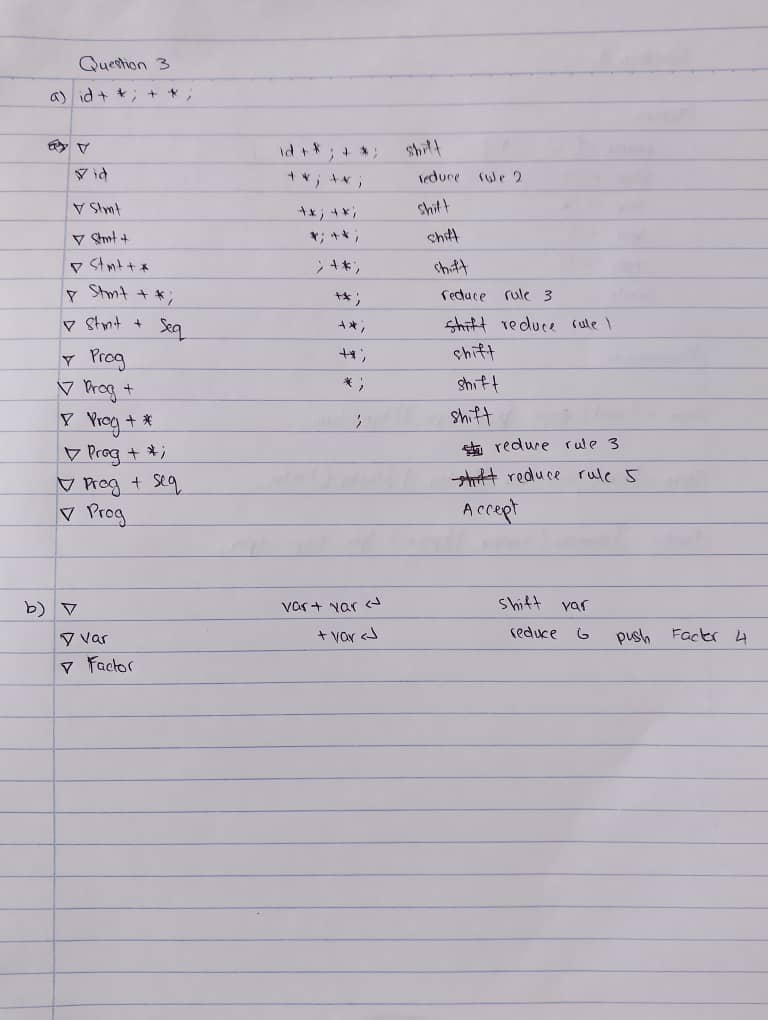 Question 3
a) id + * ; + * ;
▽ id + * ; + * ; shift
▽ id + * ; + * ; reduce rule 2
▽ Stmt + * ; + * ; shift
▽ Stmt + * ; + * ; shift
▽ Stmt + * ; + * ; shift
▽ Stmt + * ; + * ; reduce rule 3
▽ Stmt + Seq + * ; shift reduce rule 1
▽ Prog + * ; shift
▽ Prog + * ; shift
▽ Prog + * ; shift
▽ Prog + * ; reduce rule 3
▽ Prog + Seq shift reduce rule 5
▽ Prog Accept
b) ▽ var + var ↵ shift var
▽ var + var ↵ reduce 6 push Factor 4
▽ Factor